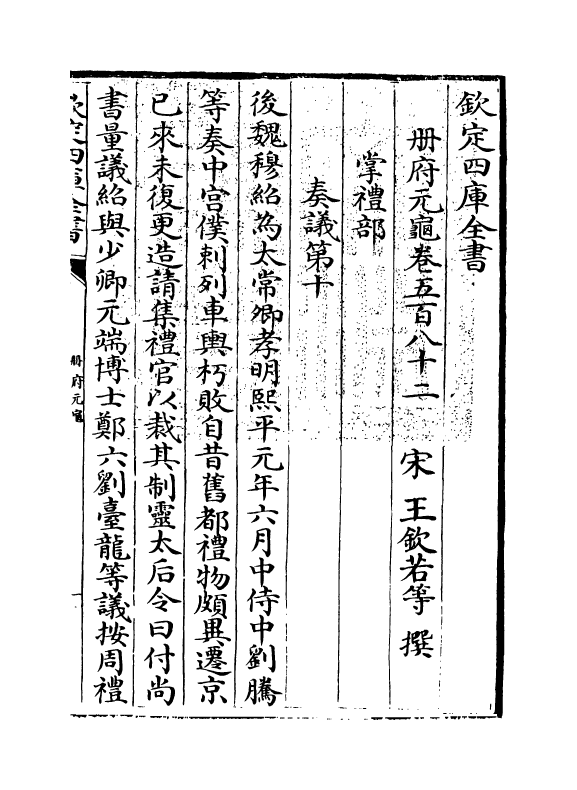 欽定四庫全書
册府元龜卷五百八十二
宋 王欽若等 撰
掌禮部
奏議第十
後魏穆紹為太常卿孝明熙平元年六月中侍中劉騰
等奏中宫僕刺列車輿朽敗自昔舊都禮物頗異遷京
已來未復更造請集禮官以裁其制靈太后令曰付尚
書量議紹與少卿元端博士鄭六劉臺龍等議按周禮
欽定四庫全書
册府元龜
一